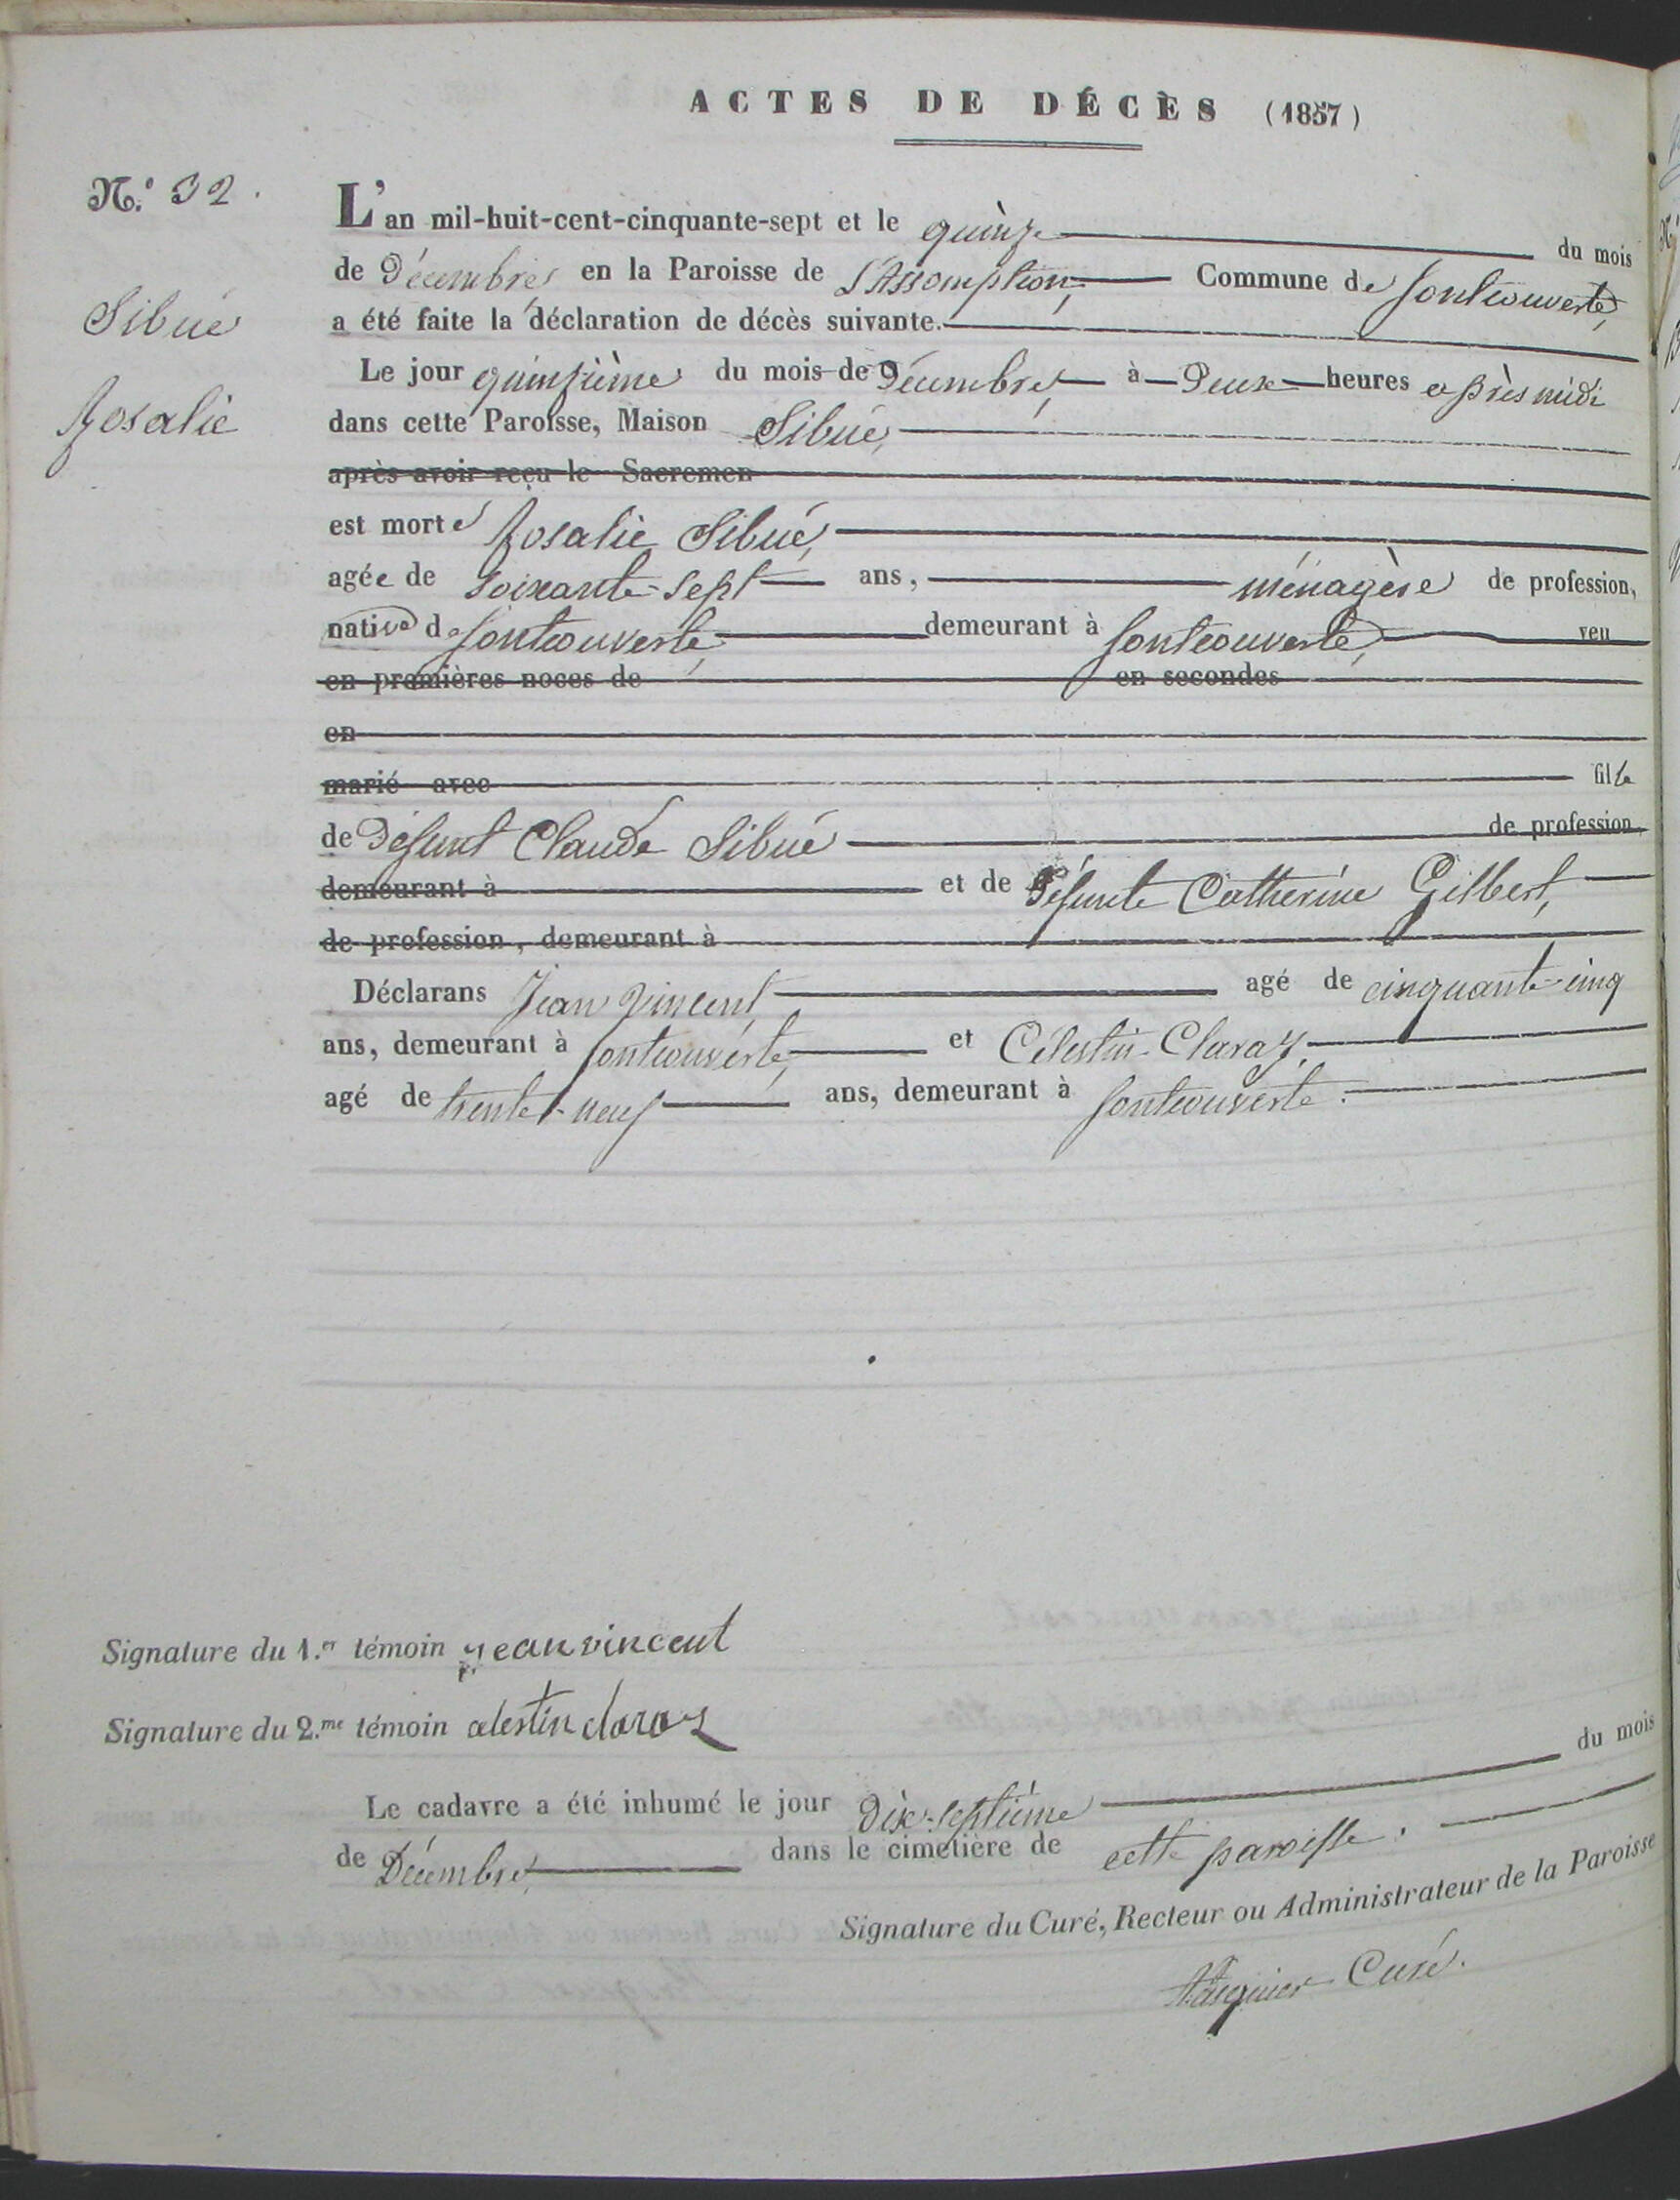 ACTES DE DÉCÈS (1857)
N.° 32.
Sibué
Rosalie
L'an mil-huit-cent-cinquante-sept et le quinze du mois
de Décembre, en la Paroisse de l'Assomption, Commune de fontcouverte,
a été faite la déclaration de décès suivante.
Le jour quinzième du mois de Décembre, à Deux heures après midi
dans cette Paroisse, Maison Sibué,
après avoir reçu le Sacremen
est morte Rosalie Sibué,
agée de soixante-sept ans, ménagère de profession,
native de fontcouverte, demeurant à fontcouverte, veu
en premières noces de en secondes
en
marié avec fille
de Défunt Claude Sibué de profession,
demeurant à et de Défunte Catherine Gilbert,
de profession, demeurant à
Déclarans Jean Vincent, agé de cinquante-cinq
ans, demeurant à fontcouverte, et Célestin Claraz,
agé de trente-neuf ans, demeurant à fontcouverte.
Signature du 1.er témoin jean vincent
Signature du 2.me témoin celestin claraz
Le cadavre a été inhumé le jour Dix-septième du mois
de Décembre, dans le cimetière de cette paroisse.
Signature du Curé, Recteur ou Administrateur de la Paroisse
Curé.